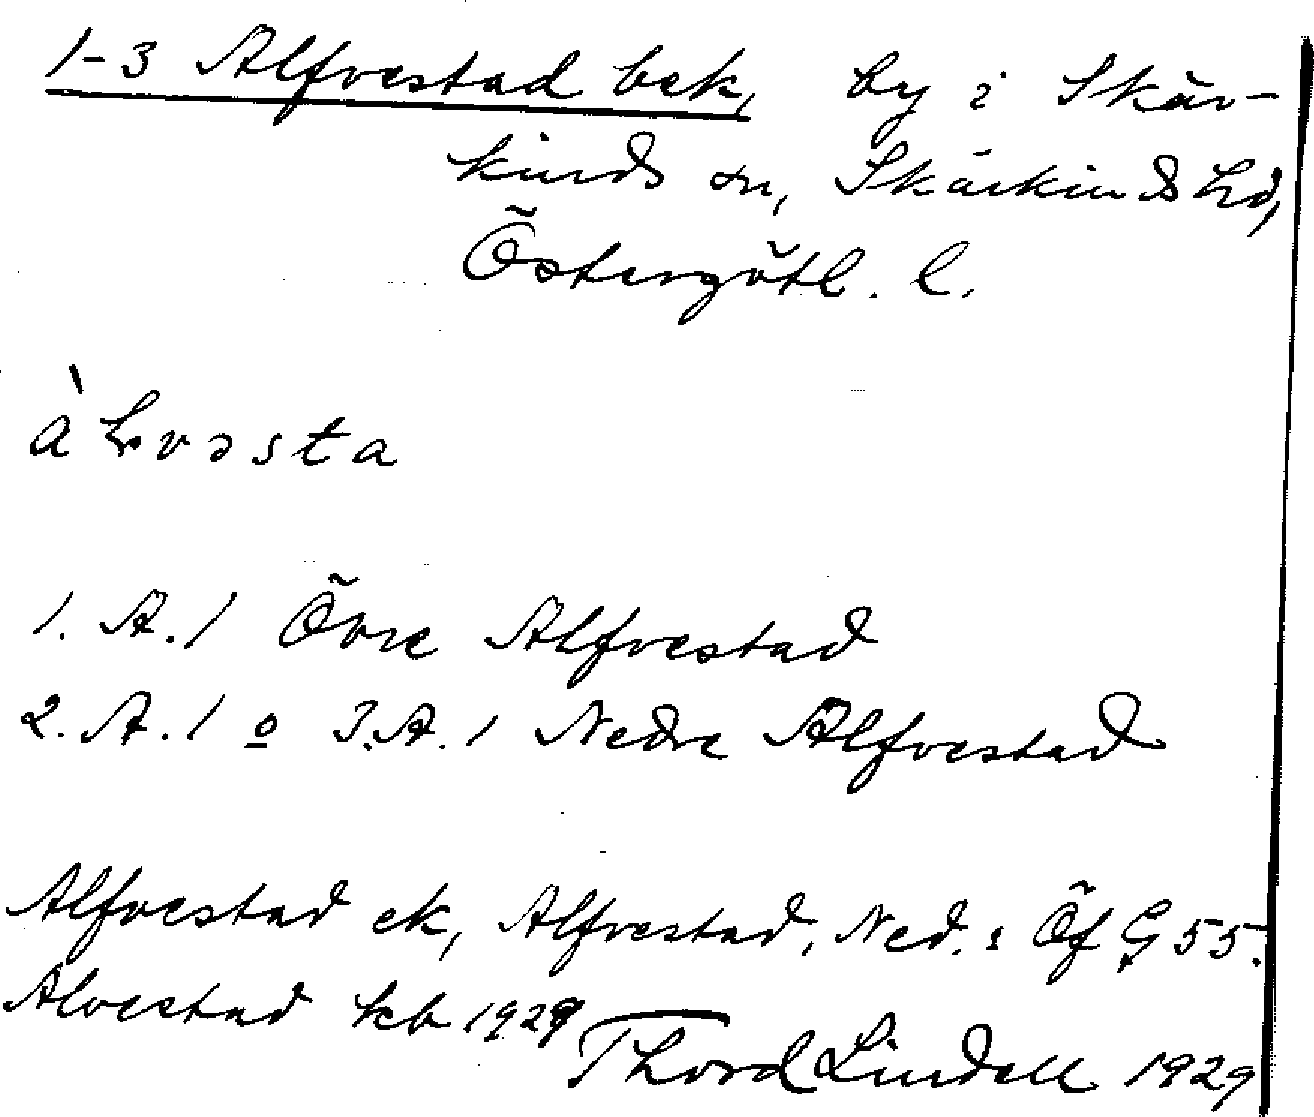 1-3 Alfvestad bek, by i Skär-
kinds sn, Skärkinds hd,
Östergötl. l.
àLvəsta
1. A.1 Övre Alfvestad
2. A.1 o 3.A.1 Nedre Alfvestad
Alfvestad ek, Alfvestad, Ned. : Öf G 55.
Alvestad kb 1929
Thord Lindell 1929